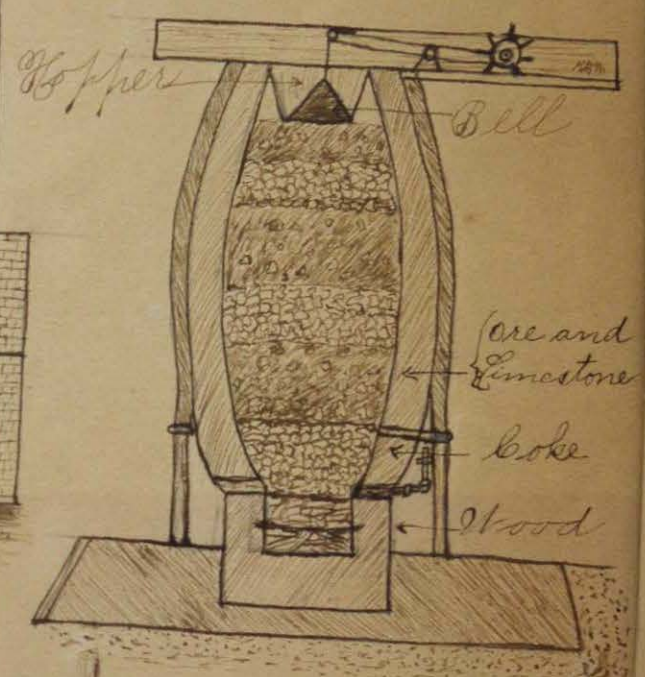 Hopper
Bell
ore and
Limestone
Coke
Wood